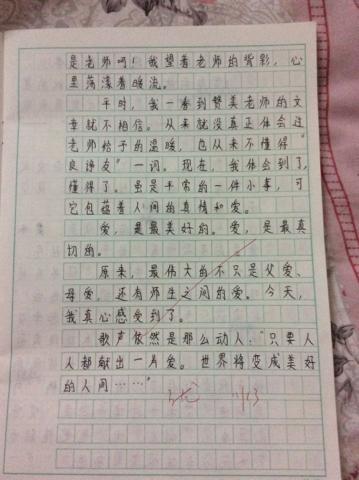 是老师吗！我望着老师的背影，心
里荡漾着暖流。
平时，我一看到赞美老师的文
章就不相信。从来就没真正体会过
老师给予的温暖，也从未不懂得“
良诤友”一词。现在，我体会到了，
懂得了。虽是平常的一件小事，可
它包蕴着人间的真情和爱。
爱，是最美好的。爱，是最真
切的。
原来，最伟大的不只是父爱、
母爱，还有师生之间的爱。今天，
我真心感受到了。
歌声依然是那么动人：“只要人
人都献出一片爱。世界将变成美好
的人间……”